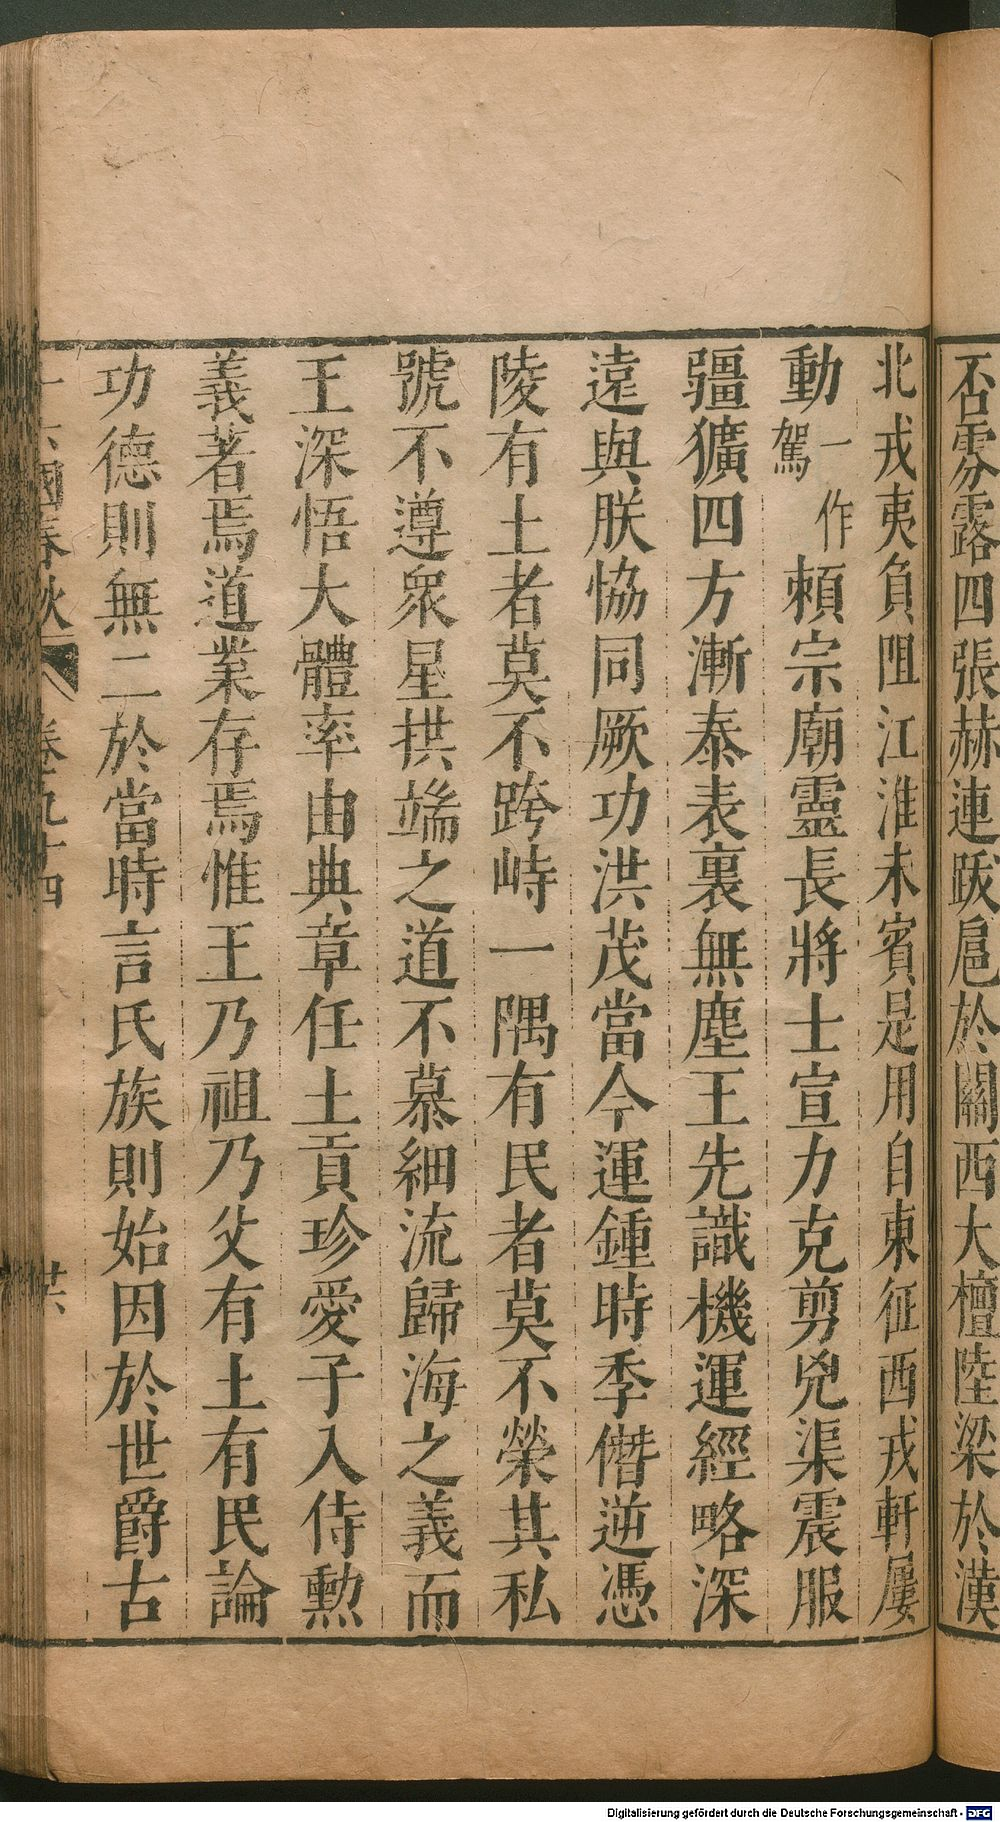 否雰露四張赫連跋扈於關西大檀陸梁於漢
北戎夷負阻江淮未賓是用自東征西戎軒屢
動一作駕賴宗廟靈長將士宣力克剪兇渠震服
疆獷四方漸泰表裏無塵王先識機運經略深
遠與朕恊同厥功洪茂當今運鍾時季僭逆憑
陵有土者莫不跨峙一隅有民者莫不榮其私
號不遵眾星拱端之道不慕細流歸海之義而
王深悟大體率由典章任土貢珍愛子入侍勳
義著焉道業存焉惟王乃祖乃父有土有民論
功德則無二於當時言氏族則始因於世爵古
十六國春秋 卷九十四 廿六
Digitalisierung gefördert durch die Deutsche Forschungsgemeinschaft - DFG